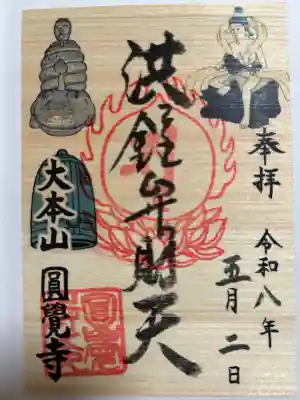 奉拝
令和八年
五月二日
洪鐘弁財天
大本山
圓覺寺